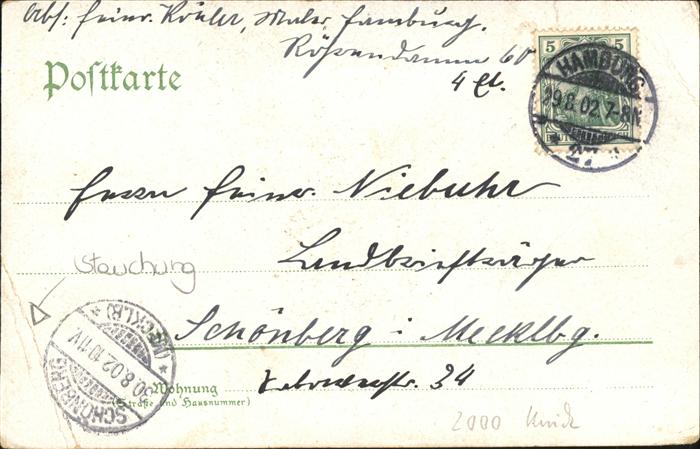 Abs: Heinr. Köhler, Maler, Hamburg.
Rösendamm 60
4 Et.
Postkarte
5 5
HAMBURG
29.8.02.7-8N.
* 27 *
Herrn Heinr. Niebuhr
Landbriefträger
Stauchung
Schönberg i. Mecklbg.
SCHÖNBERG (MECKLB) *
30.8.02.10-11V.
34
Wohnung
(Straße und Hausnummer)
2000 Knick